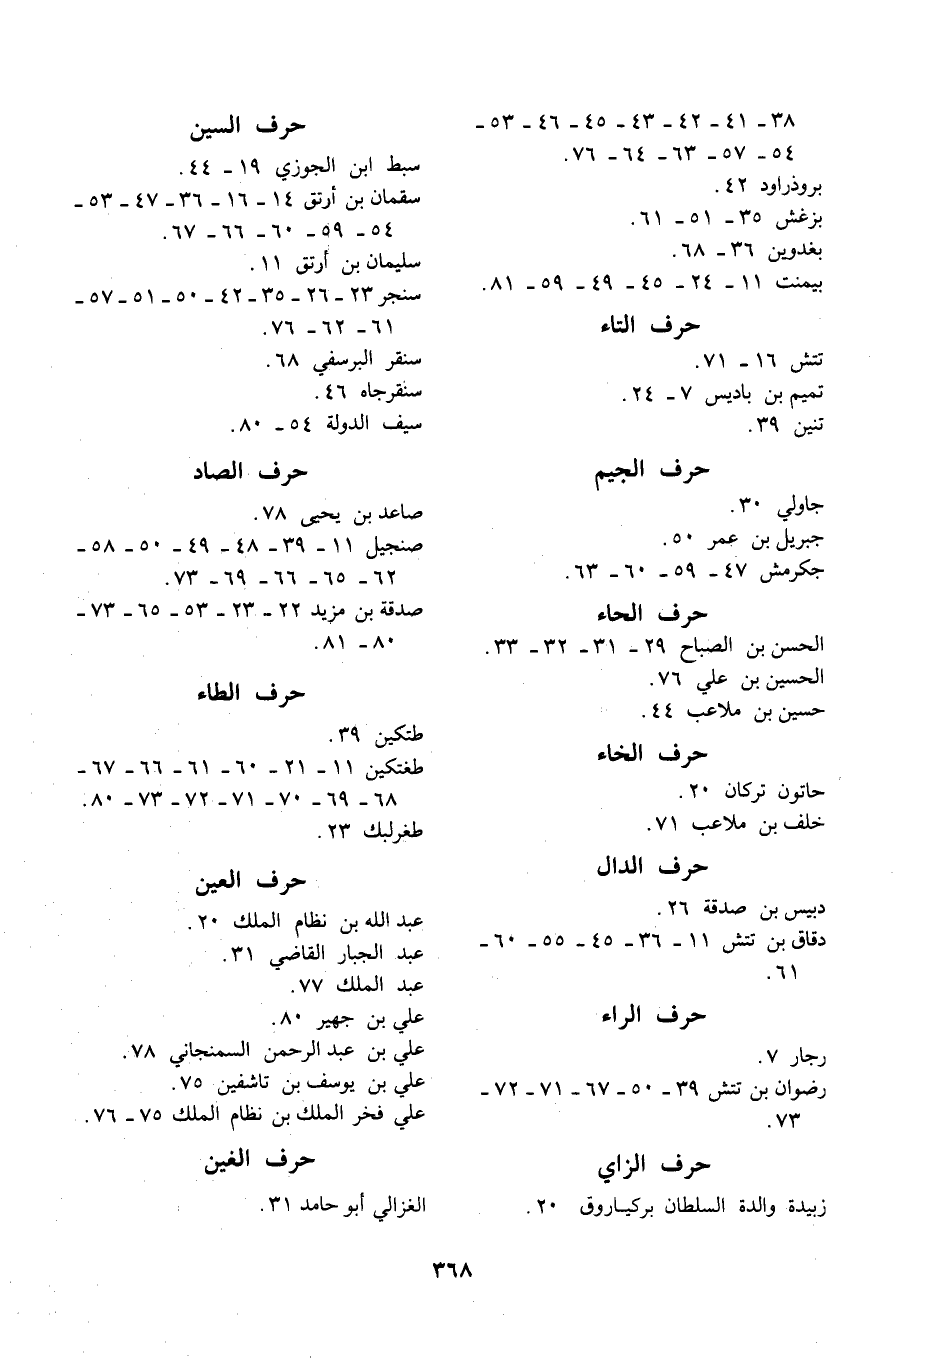 ٣٨ ـ ٤١ ـ ٤٢ ـ ٤٣ ـ ٤٥ ـ ٤٦ ـ ٥٣ ـ
٥٤ ـ ٥٧ ـ ٦٣ ـ ٦٤ ـ ٧٦.
بروذراود ٤٢.
بزغش ٣٥ ـ ٥١ ـ ٦١.
بغدوين ٣٦ ـ ٦٨.
بيمنت ١١ ـ ٢٤ ـ ٤٥ ـ ٤٩ ـ ٥٩ ـ ٨١.
حرف التاء
تتش ١٦ ـ ٧١.
تميم بن باديس ٧ ـ ٢٤.
تنين ٣٩.
حرف الجيم
جاولي ٣٠.
جبريل بن عمر ٥٠.
جكرمش ٤٧ ـ ٥٩ ـ ٦٠ ـ ٦٣.
حرف الحاء
الحسن بن الصباح ٢٩ ـ ٣١ ـ ٣٢ ـ ٣٣.
الحسين بن علي ٧٦.
حسين بن ملاعب ٤٤.
حرف الخاء
خاتون تركان ٢٠.
خلف بن ملاعب ٧١.
حرف الدال
دبيس بن صدقة ٢٦.
دقاق بن تتش ١١ ـ ٣٦ ـ ٤٥ ـ ٥٥ ـ ٦٠ ـ
٦١.
حرف الراء
رجار ٧.
رضوان بن تتش ٣٩ ـ ٥٠ ـ ٦٧ ـ ٧١ ـ ٧٢ ـ
٧٣.
حرف الزاي
زبيدة والدة السلطان بركيـاروق ٢٠.
حرف السين
سبط ابن الجوزي ١٩ ـ ٤٤.
سقمان بن أرتق ١٤ ـ ١٦ ـ ٣٦ ـ ٤٧ ـ ٥٣ ـ
٥٤ ـ ٥٩ ـ ٦٠ ـ ٦٦ ـ ٦٧.
سليمان بن أرتق ١١.
سنجر ٢٣ ـ ٢٦ ـ ٣٥ ـ ٤٢ ـ ٥٠ ـ ٥١ ـ ٥٧ ـ
٦١ ـ ٦٢ ـ ٧٦.
سنقر البرسفي ٦٨.
سنقرجاه ٤٦.
سيف الدولة ٥٤ ـ ٨٠.
حرف الصاد
صاعد بن يحيى ٧٨.
صنجيل ١١ ـ ٣٩ ـ ٤٨ ـ ٤٩ ـ ٥٠ ـ ٥٨ ـ
٦٢ ـ ٦٥ ـ ٦٦ ـ ٦٩ ـ ٧٣.
صدقة بن مزيد ٢٢ ـ ٢٣ ـ ٥٣ ـ ٦٥ ـ ٧٣ ـ
٨٠ ـ ٨١.
حرف الطاء
طتكين ٣٩.
طغتكين ١١ ـ ٢١ ـ ٦٠ ـ ٦١ ـ ٦٦ ـ ٦٧ ـ
٦٨ ـ ٦٩ ـ ٧٠ ـ ٧١ ـ ٧٢ ـ ٧٣ ـ ٨٠.
طغرلبك ٢٣.
حرف العين
عبد الله بن نظام الملك ٢٠.
عبد الجبار القاضي ٣١.
عبد الملك ٧٧.
علي بن جهير ٨٠.
علي بن عبد الرحمن السمنجاني ٧٨.
علي بن يوسف بن تاشفين ٧٥.
علي فخر الملك بن نظام الملك ٧٥ ـ ٧٦.
حرف الغين
الغزالي أبو حامد ٣١.
٣٦٨